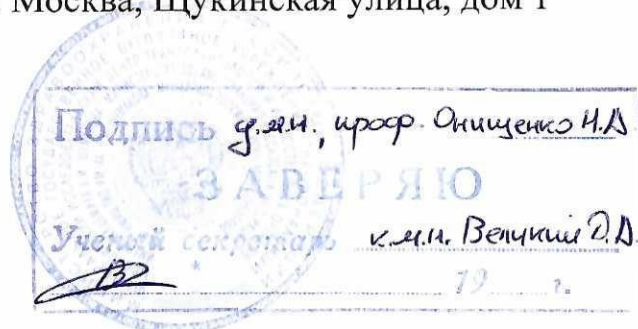 Москва, Щукинская улица, дом 1
Подпись д.м.н., проф. Онищенко Н.А.
ЗАВЕРЯЮ
Ученый секретарь к.м.н. Великий Д.А.
19 г.